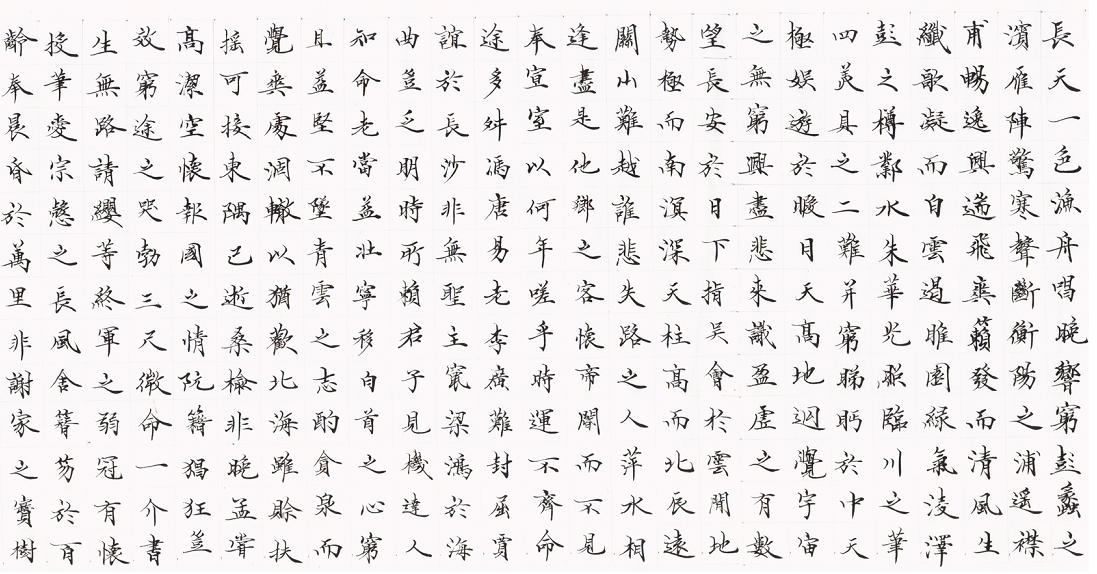 長天一色漁舟唱晚響窮彭蠡之
濱雁陣驚寒聲斷衡陽之浦遥襟
甫暢逸興遄飛爽籟發而清風生
纖歌凝而白雲遏睢園綠氣淩澤
彭之樽鄴水朱華光照臨川之筆
四美具之二難并窮睇眄於中天
極娛遊於暇日天高地迥覺宇宙
之無窮興盡悲來識盈虛之有數
望長安於日下指吳會於雲間地
勢極而南溟深天柱高而北辰遠
關山難越誰悲失路之人萍水相
逢盡是他鄉之客懷帝閽而不見
奉宣室以何年嗟乎時運不齊命
途多舛馮唐易老李廣難封屈賈
誼於長沙非無聖主竄梁鴻於海
曲豈乏明時所賴君子見機達人
知命老當益壯寧移白首之心窮
且益堅不墜青雲之志酌貪泉而
覺爽處涸轍以猶歡北海雖賒扶
搖可接東隅已逝桑榆非晚孟嘗
高潔空懷報國之情阮籍猖狂豈
效窮途之哭勃三尺微命一介書
生無路請纓等終軍之弱冠有懷
投筆愛宗愨之長風舍簪笏於百
齡奉晨昏於萬里非謝家之寶樹